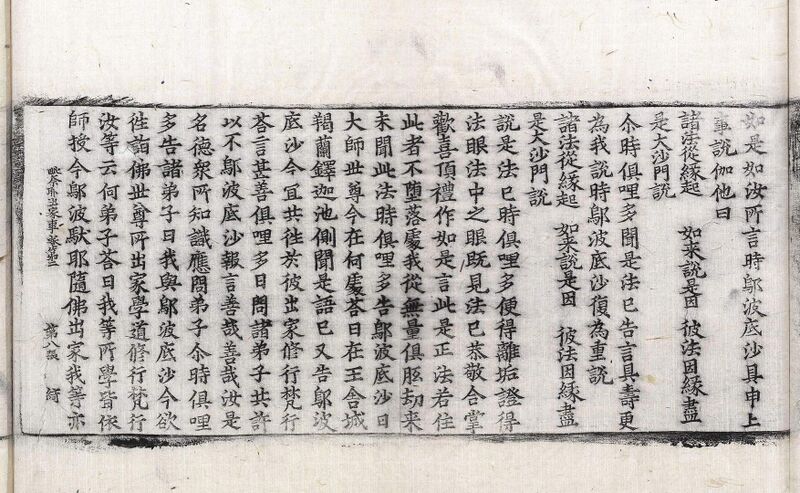 如是如汝所言時鄔波底沙具申上
事說伽他曰
諸法從緣起　如来說是因　彼法因緣盡
是大沙門說
尒時俱哩多聞是法已告言具壽更
為我說時鄔波底沙復為重說
諸法從緣起　如来說是因　彼法因緣盡
是大沙門說
說是法已時俱哩多便得離垢證得
法眼法中之眼既見法已恭敬合掌
歡喜頂禮作如是言此是正法若住
此者不墮落處我從無量俱胝劫来
未聞此法時俱哩多告鄔波底沙曰
大師世尊今在何處荅曰在王舍城
羯蘭鐸迦池側聞是語已又告鄔波
底沙今冝共徃於彼出家修行梵行
荅言甚善俱哩多曰問諸弟子共許
以不鄔波底沙報言善哉善哉汝是
名德衆所知識應問弟子尒時俱哩
多告諸弟子曰我與鄔波底沙今欲
徃詣佛世尊所出家學道修行梵行
汝等云何弟子荅曰我等所學皆依
師授今鄔波馱耶隨佛出家我等亦
出家事卷第二　第八張　綺